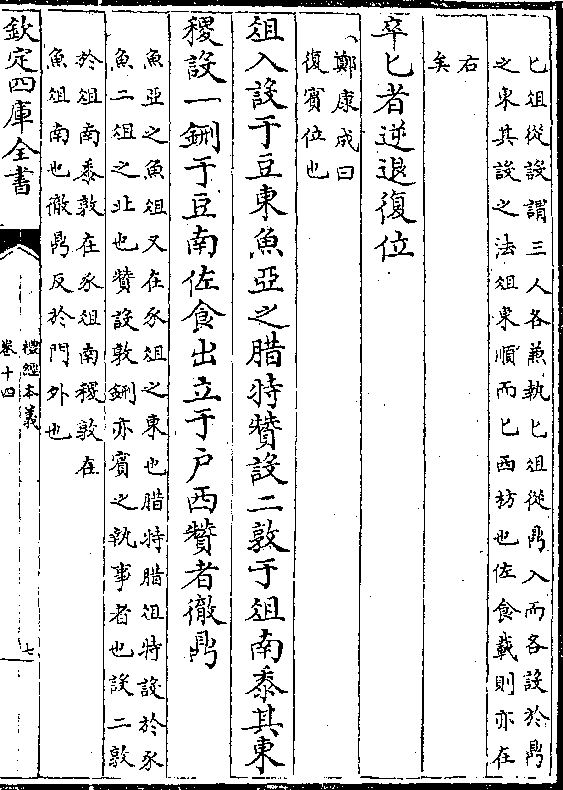 匕俎從設謂三人各兼執匕俎從鼎入而各設於鼎
之東其設之法俎東順而匕西枋也佐食載則亦在
右
矣
卒匕者逆退復位
鄭康成曰
復賓位也
俎入設于豆東魚亞之腊特贊設二敦于俎南黍其東
稷設一鉶于豆南佐食出立于戶西贊者徹鼎
魚亞之魚俎又在豕俎之東也腊特腊俎特設於豕
魚二俎之北也贊設敦鉶亦賓之執事者也設二敦
於俎南黍敦在豕俎南稷敦在
魚俎南也徹鼎反於門外也
欽定四庫全書
禮經本義
卷十四
七